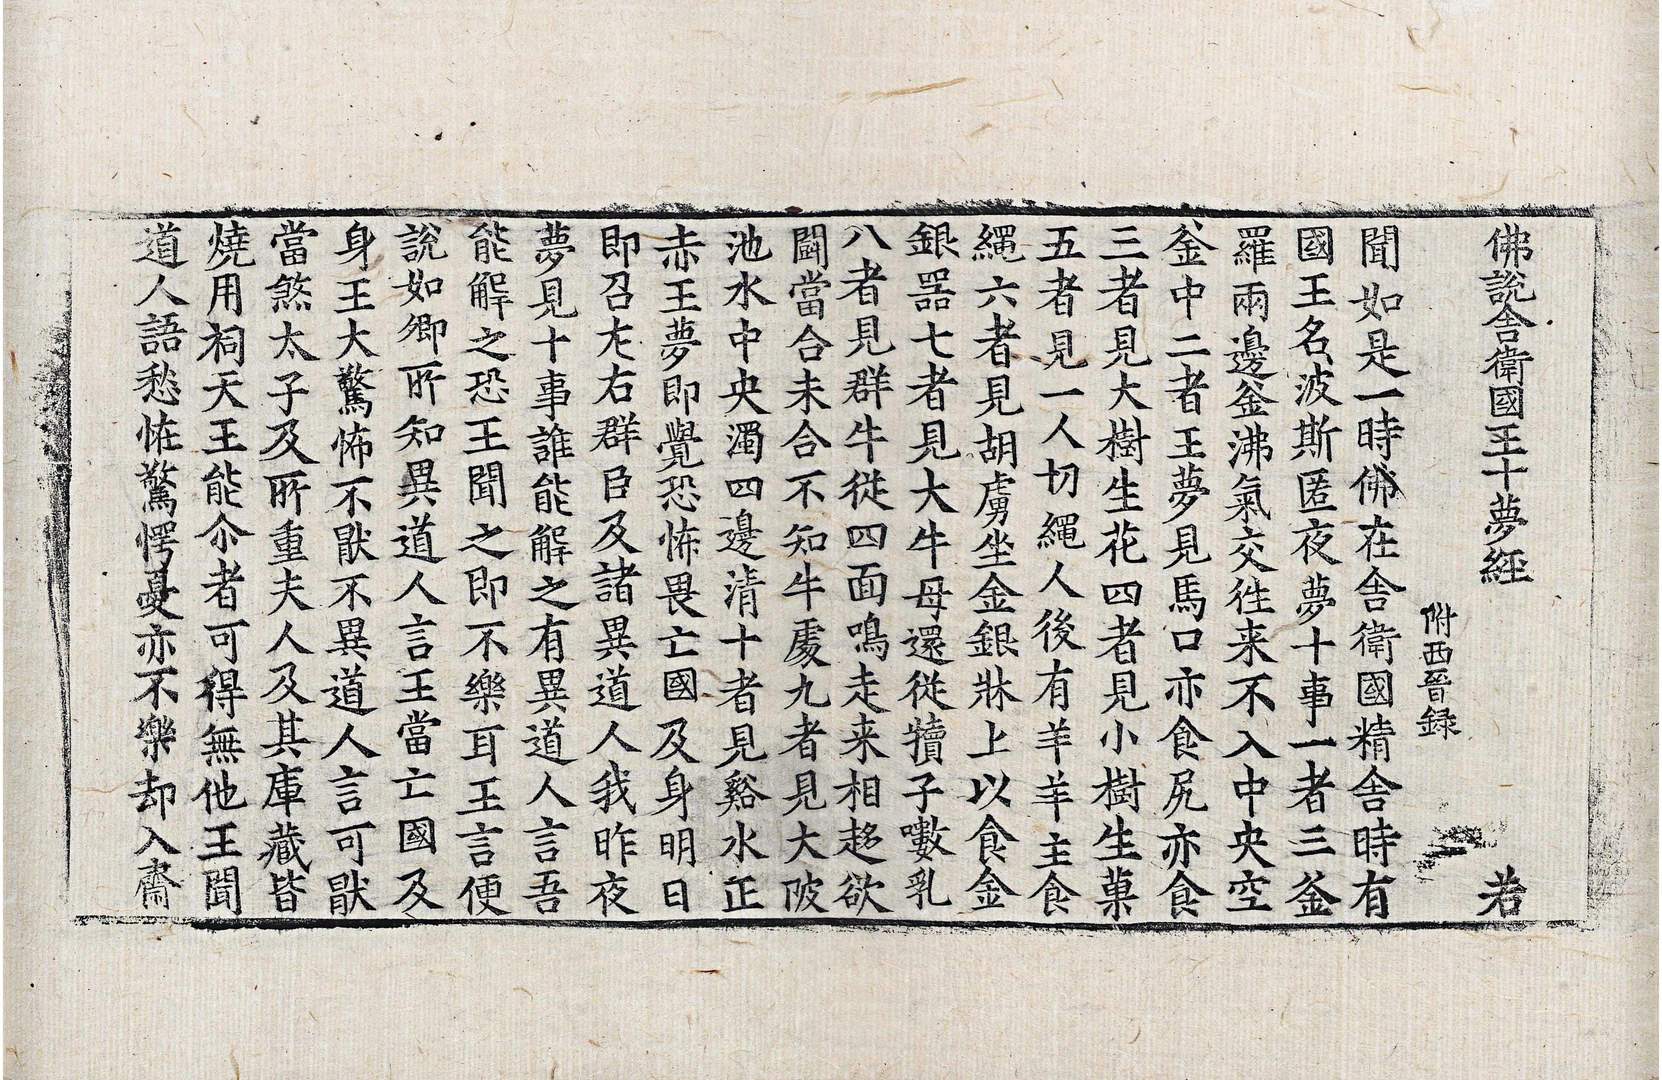 佛說舍衛國王十夢經 若
附西晉録
聞如是一時佛在舍衛國精舍時有
國王名波斯匿夜夢十事一者三釜
羅兩邊釜沸氣交徃来不入中央空
釜中二者王夢見馬口亦食尻亦食
三者見大樹生花四者見小樹生菓
五者見一人切繩人後有羊羊主食
繩六者見胡虜坐金銀牀上以食金
銀器七者見大牛母還從犢子嗽乳
八者見群牛從四面鳴走来相趍欲
鬪當合未合不知牛處九者見大陂
池水中央濁四邊清十者見谿水正
赤王夢即覺恐怖畏亡國及身明日
即召左右群臣及諸異道人我昨夜
夢見十事誰能解之有異道人言吾
能解之恐王聞之即不樂耳王言便
說如卿所知異道人言王當亡國及
身王大驚怖不猒不異道人言可猒
當煞太子及所重夫人及其庫藏皆
燒用祠天王能尒者可得無他王聞
道人語愁怪驚愕憂亦不樂却入齋